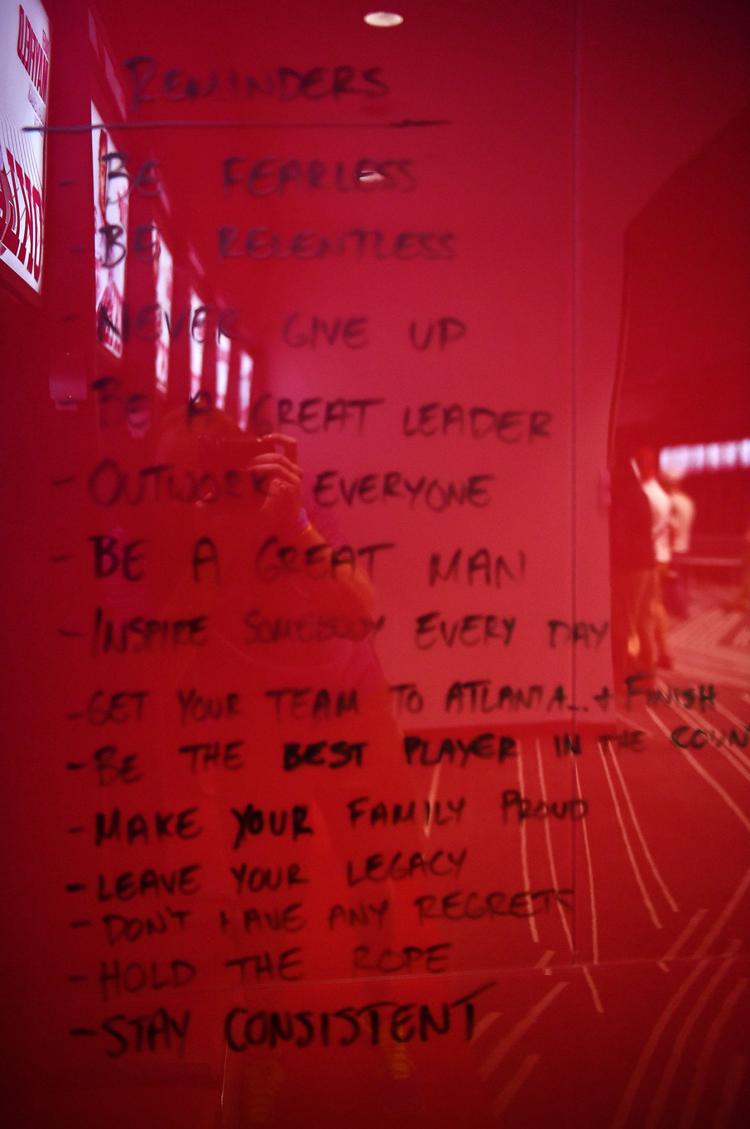 REMINDERS
- BE FEARLESS
- BE RELENTLESS
- NEVER GIVE UP
- BE A GREAT LEADER
- OUTWORK EVERYONE
- BE A GREAT MAN
- INSPIRE SOMEBODY EVERY DAY
- GET YOUR TEAM TO ATLANTA... + FINISH
- BE THE BEST PLAYER IN THE COUN
- MAKE YOUR FAMILY PROUD
- LEAVE YOUR LEGACY
- DON'T HAVE ANY REGRETS
- HOLD THE ROPE
- STAY CONSISTENT